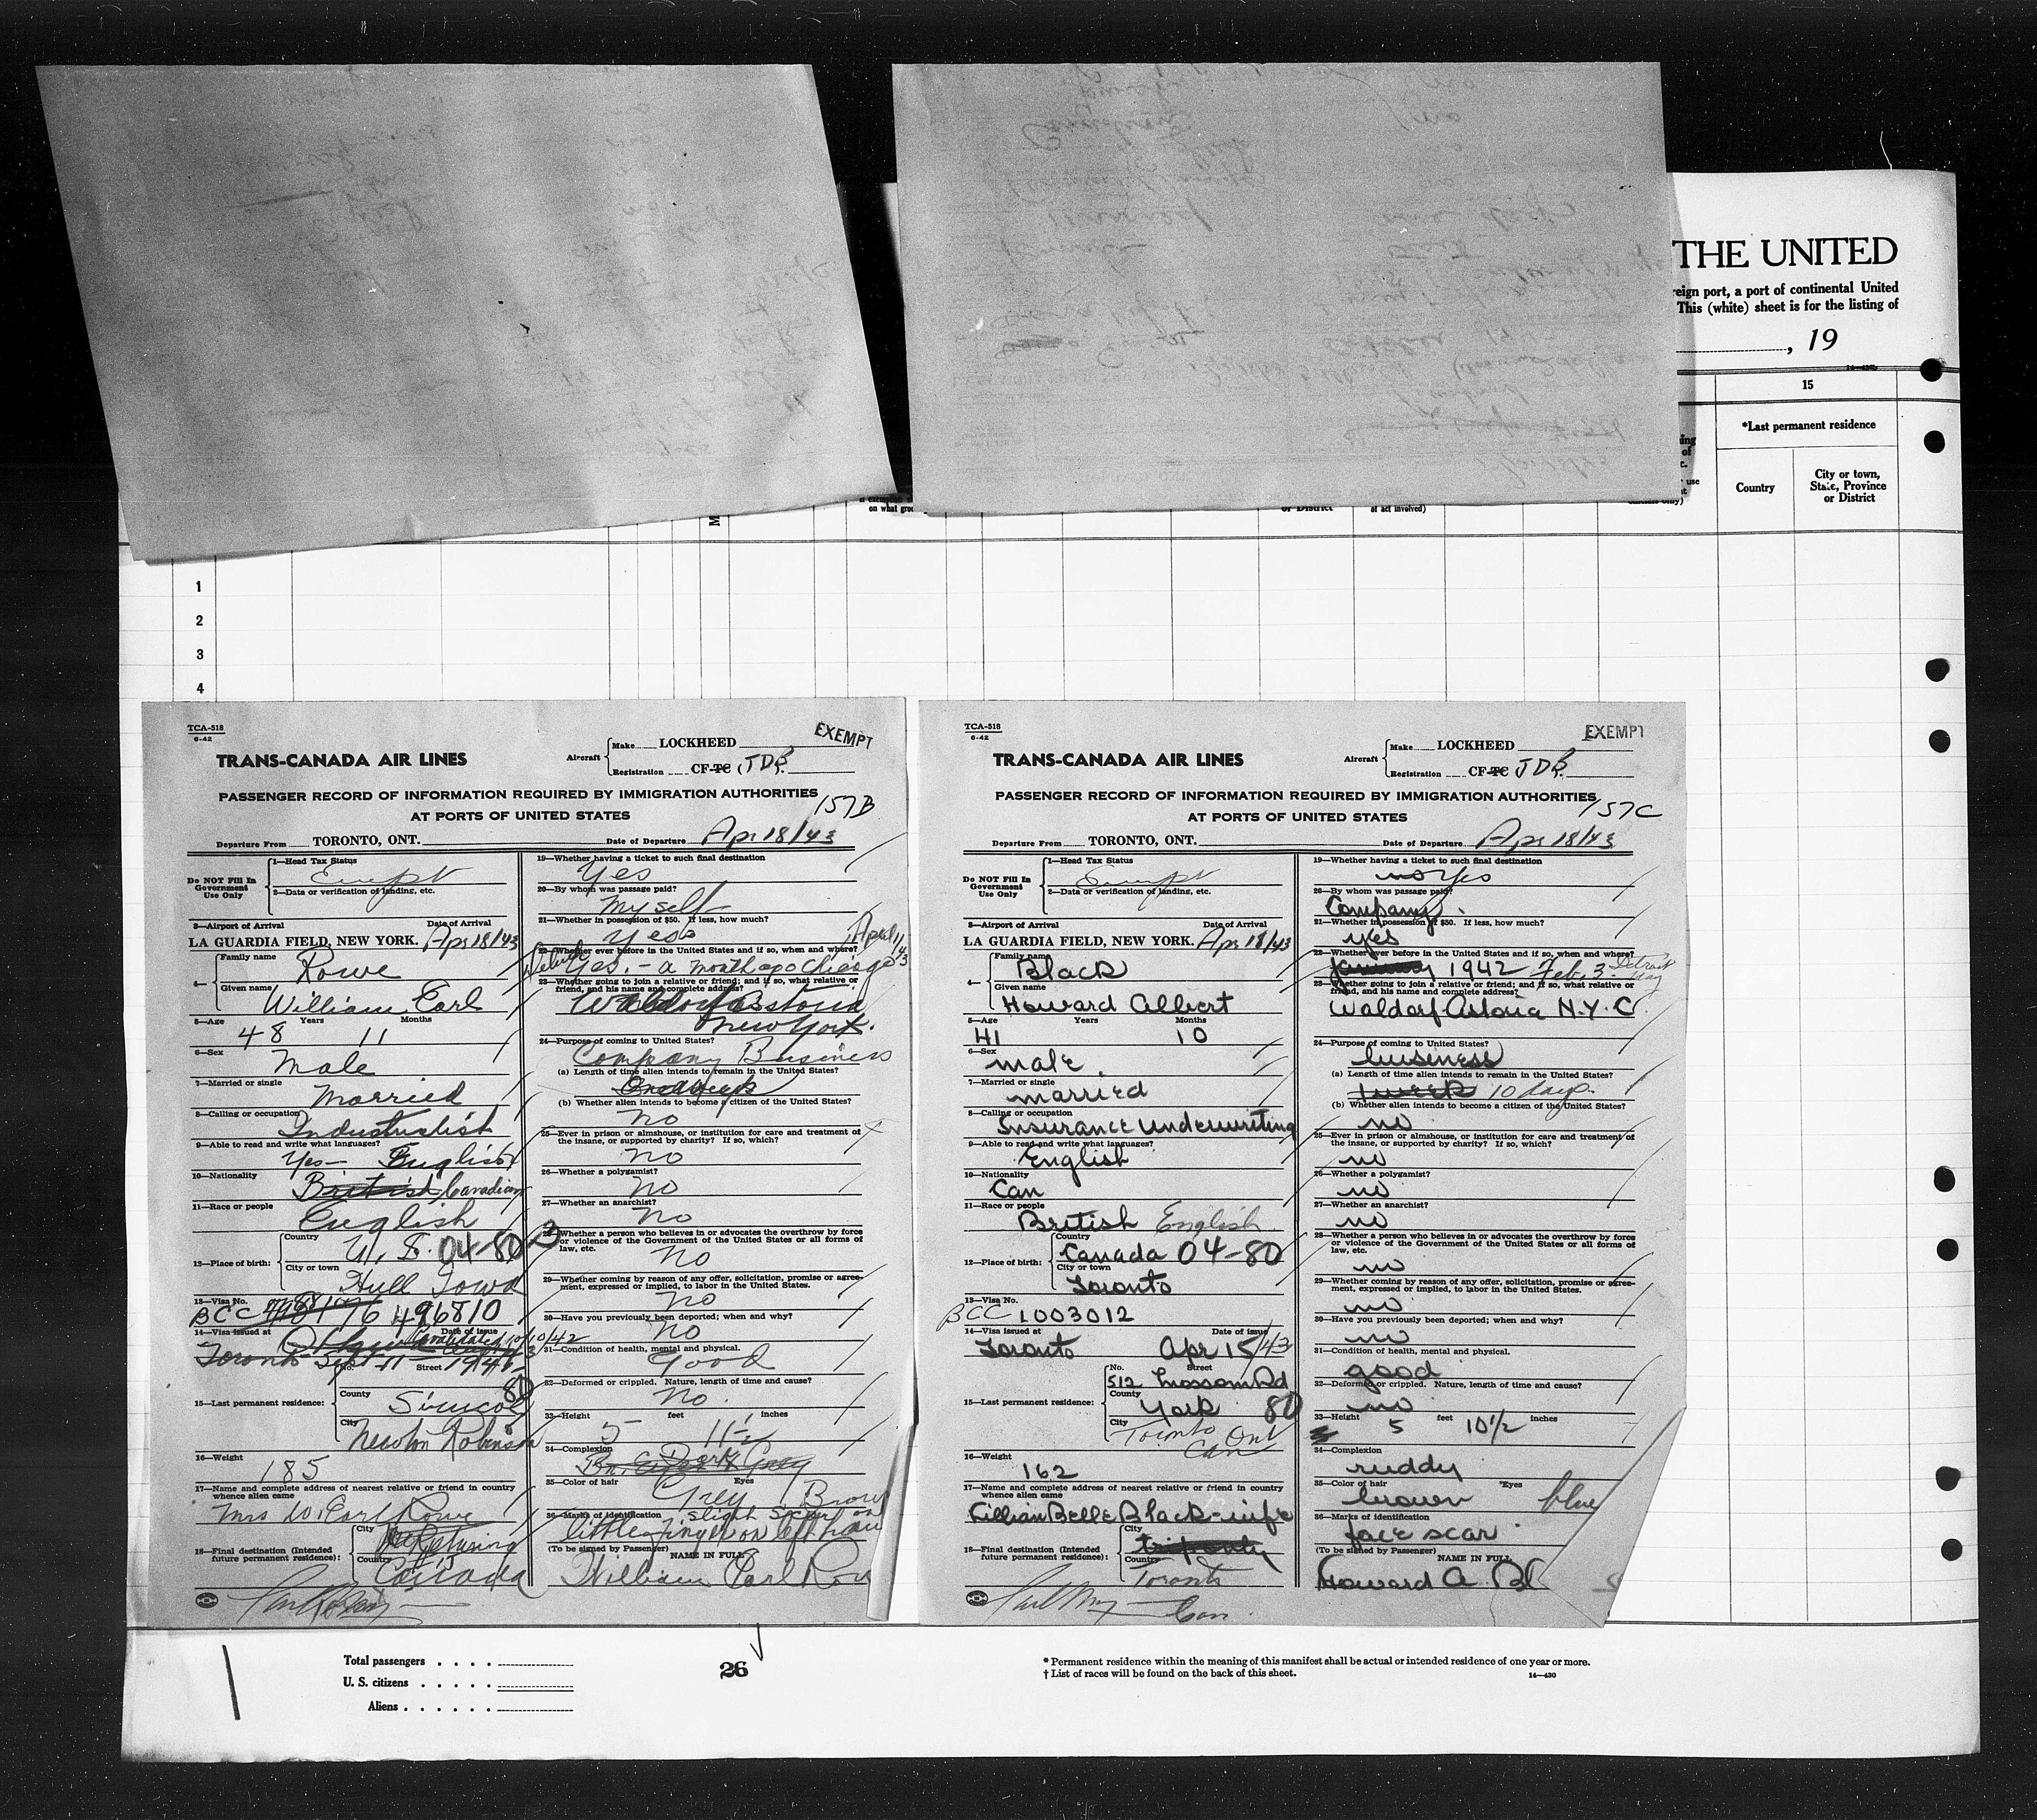 THE UNITED
reign port, a port of continental United
This (white) sheet is for the listing of
, 19
15
*Last permanent residence
Country
City or town,
State, Province
or District
on what
or District
of act involved)
1
2
3
4
TCA-518
6-42
EXEMPT
TRANS-CANADA AIR LINES
Aircraft
Make LOCKHEED
Registration CF-TC (JDB
PASSENGER RECORD OF INFORMATION REQUIRED BY IMMIGRATION AUTHORITIES
157B
AT PORTS OF UNITED STATES
Departure From TORONTO, ONT. Date of Departure Apr 18/43
Do NOT Fill In
Government
Use Only
1—Head Tax Status
Exempt
2—Data or verification of landing, etc.
3—Airport of Arrival Date of Arrival
LA GUARDIA FIELD, NEW YORK. Apr 18/43
4— Family name
Rowe
Given name
William Earl
5—Age Years Months
48 11
6—Sex
Male
7—Married or single
Married
8—Calling or occupation
Industrialist
9—Able to read and write what languages?
Yes— English
10—Nationality
British Canadian
11—Race or people
English
12—Place of birth: Country
U.S. 04-80
City or town
Hull Iowa
13—Visa No.
BCC 496810
14—Visa issued at Date of issue
10/10/42
Toronto Sept 11— 1941
No. Street
15—Last permanent residence:
County
Simcoe 80
City
Newton Robinson
16—Weight
185
17—Name and complete address of nearest relative or friend in country
whence alien came
Mrs W. Earl Rowe
18—Final destination (Intended
future permanent residence):
City
Returning
Country
Canada
19—Whether having a ticket to such final destination
Yes
20—By whom was passage paid?
Myself
21—Whether in possession of $50. If less, how much?
Yes
April 11/43
22—Whether ever before in the United States and if so, when and where?
Yes. — a month ago Chicago
23—Whether going to join a relative or friend; and if so, what relative or
friend, and his name and complete address?
Waldorf Astoria
New York.
24—Purpose of coming to United States?
Company Business
(a) Length of time alien intends to remain in the United States?
(b) Whether alien intends to become a citizen of the United States?
No
25—Ever in prison or almshouse, or institution for care and treatment of
the insane, or supported by charity? If so, which?
No
26—Whether a polygamist?
No
27—Whether an anarchist?
No
28—Whether a person who believes in or advocates the overthrow by force
or violence of the Government of the United States or all forms of
law, etc.
No
29—Whether coming by reason of any offer, solicitation, promise or agree-
ment, expressed or implied, to labor in the United States.
No
30—Have you previously been deported; when and why?
No
31—Condition of health, mental and physical.
Good
32—Deformed or crippled. Nature, length of time and cause?
No.
33—Height feet inches
5 11½
34—Complexion
Dark
35—Color of hair Eyes
Grey Brown
36—Marks of identification slight scar on
little finger on left hand
(To be signed by Passenger) NAME IN FULL
William Earl Rowe
TCA-518
6-42
EXEMPT
TRANS-CANADA AIR LINES
Aircraft
Make LOCKHEED
Registration CF-TC JDB
PASSENGER RECORD OF INFORMATION REQUIRED BY IMMIGRATION AUTHORITIES
157C
AT PORTS OF UNITED STATES
Departure From TORONTO, ONT. Date of Departure Apr 18/43
Do NOT Fill In
Government
Use Only
1—Head Tax Status
Exempt
2—Data or verification of landing, etc.
3—Airport of Arrival Date of Arrival
LA GUARDIA FIELD, NEW YORK. Apr 18/43
4— Family name
Black
Given name
Howard Albert
5—Age Years Months
41 10
6—Sex
male
7—Married or single
married
8—Calling or occupation
Insurance Underwriting
9—Able to read and write what languages?
English
10—Nationality
Can
11—Race or people
British English
12—Place of birth: Country
Canada 04-80
City or town
Toronto
13—Visa No.
BCC 1003012
14—Visa issued at Date of issue
Toronto Apr 15/43
15—Last permanent residence:
No. Street
512 Rd
County
York 80
City
Toronto Ont
Can
16—Weight
162
17—Name and complete address of nearest relative or friend in country
whence alien came
Lillian Belle Black - wife
18—Final destination (Intended
future permanent residence):
City
Country
Toronto
Can.
19—Whether having a ticket to such final destination
no Yes
20—By whom was passage paid?
Company.
21—Whether in possession of $50. If less, how much?
yes
22—Whether ever before in the United States and if so, when and where?
January 1942 Feb, 3 Detroit
day
23—Whether going to join a relative or friend; and if so, what relative or
friend, and his name and complete address?
Waldorf-Astoria N.Y.C.
24—Purpose of coming to United States?
business
(a) Length of time alien intends to remain in the United States?
1 week 10 days.
(b) Whether alien intends to become a citizen of the United States?
no
25—Ever in prison or almshouse, or institution for care and treatment of
the insane, or supported by charity? If so, which?
no
26—Whether a polygamist?
no
27—Whether an anarchist?
no
28—Whether a person who believes in or advocates the overthrow by force
or violence of the Government of the United States or all forms of
law, etc.
no
29—Whether coming by reason of any offer, solicitation, promise or agree-
ment, expressed or implied, to labor in the United States.
no
30—Have you previously been deported; when and why?
no
31—Condition of health, mental and physical.
good
32—Deformed or crippled. Nature, length of time and cause?
no
33—Height feet inches
5 10½
34—Complexion
ruddy
35—Color of hair Eyes
brown blue
36—Marks of identification
face scar
(To be signed by Passenger) NAME IN FULL
Howard A. Bl
Total passengers . . . .
U. S. citizens . . . . .
Aliens . . . . .
26
* Permanent residence within the meaning of this manifest shall be actual or intended residence of one year or more.
† List of races will be found on the back of this sheet.
14—430